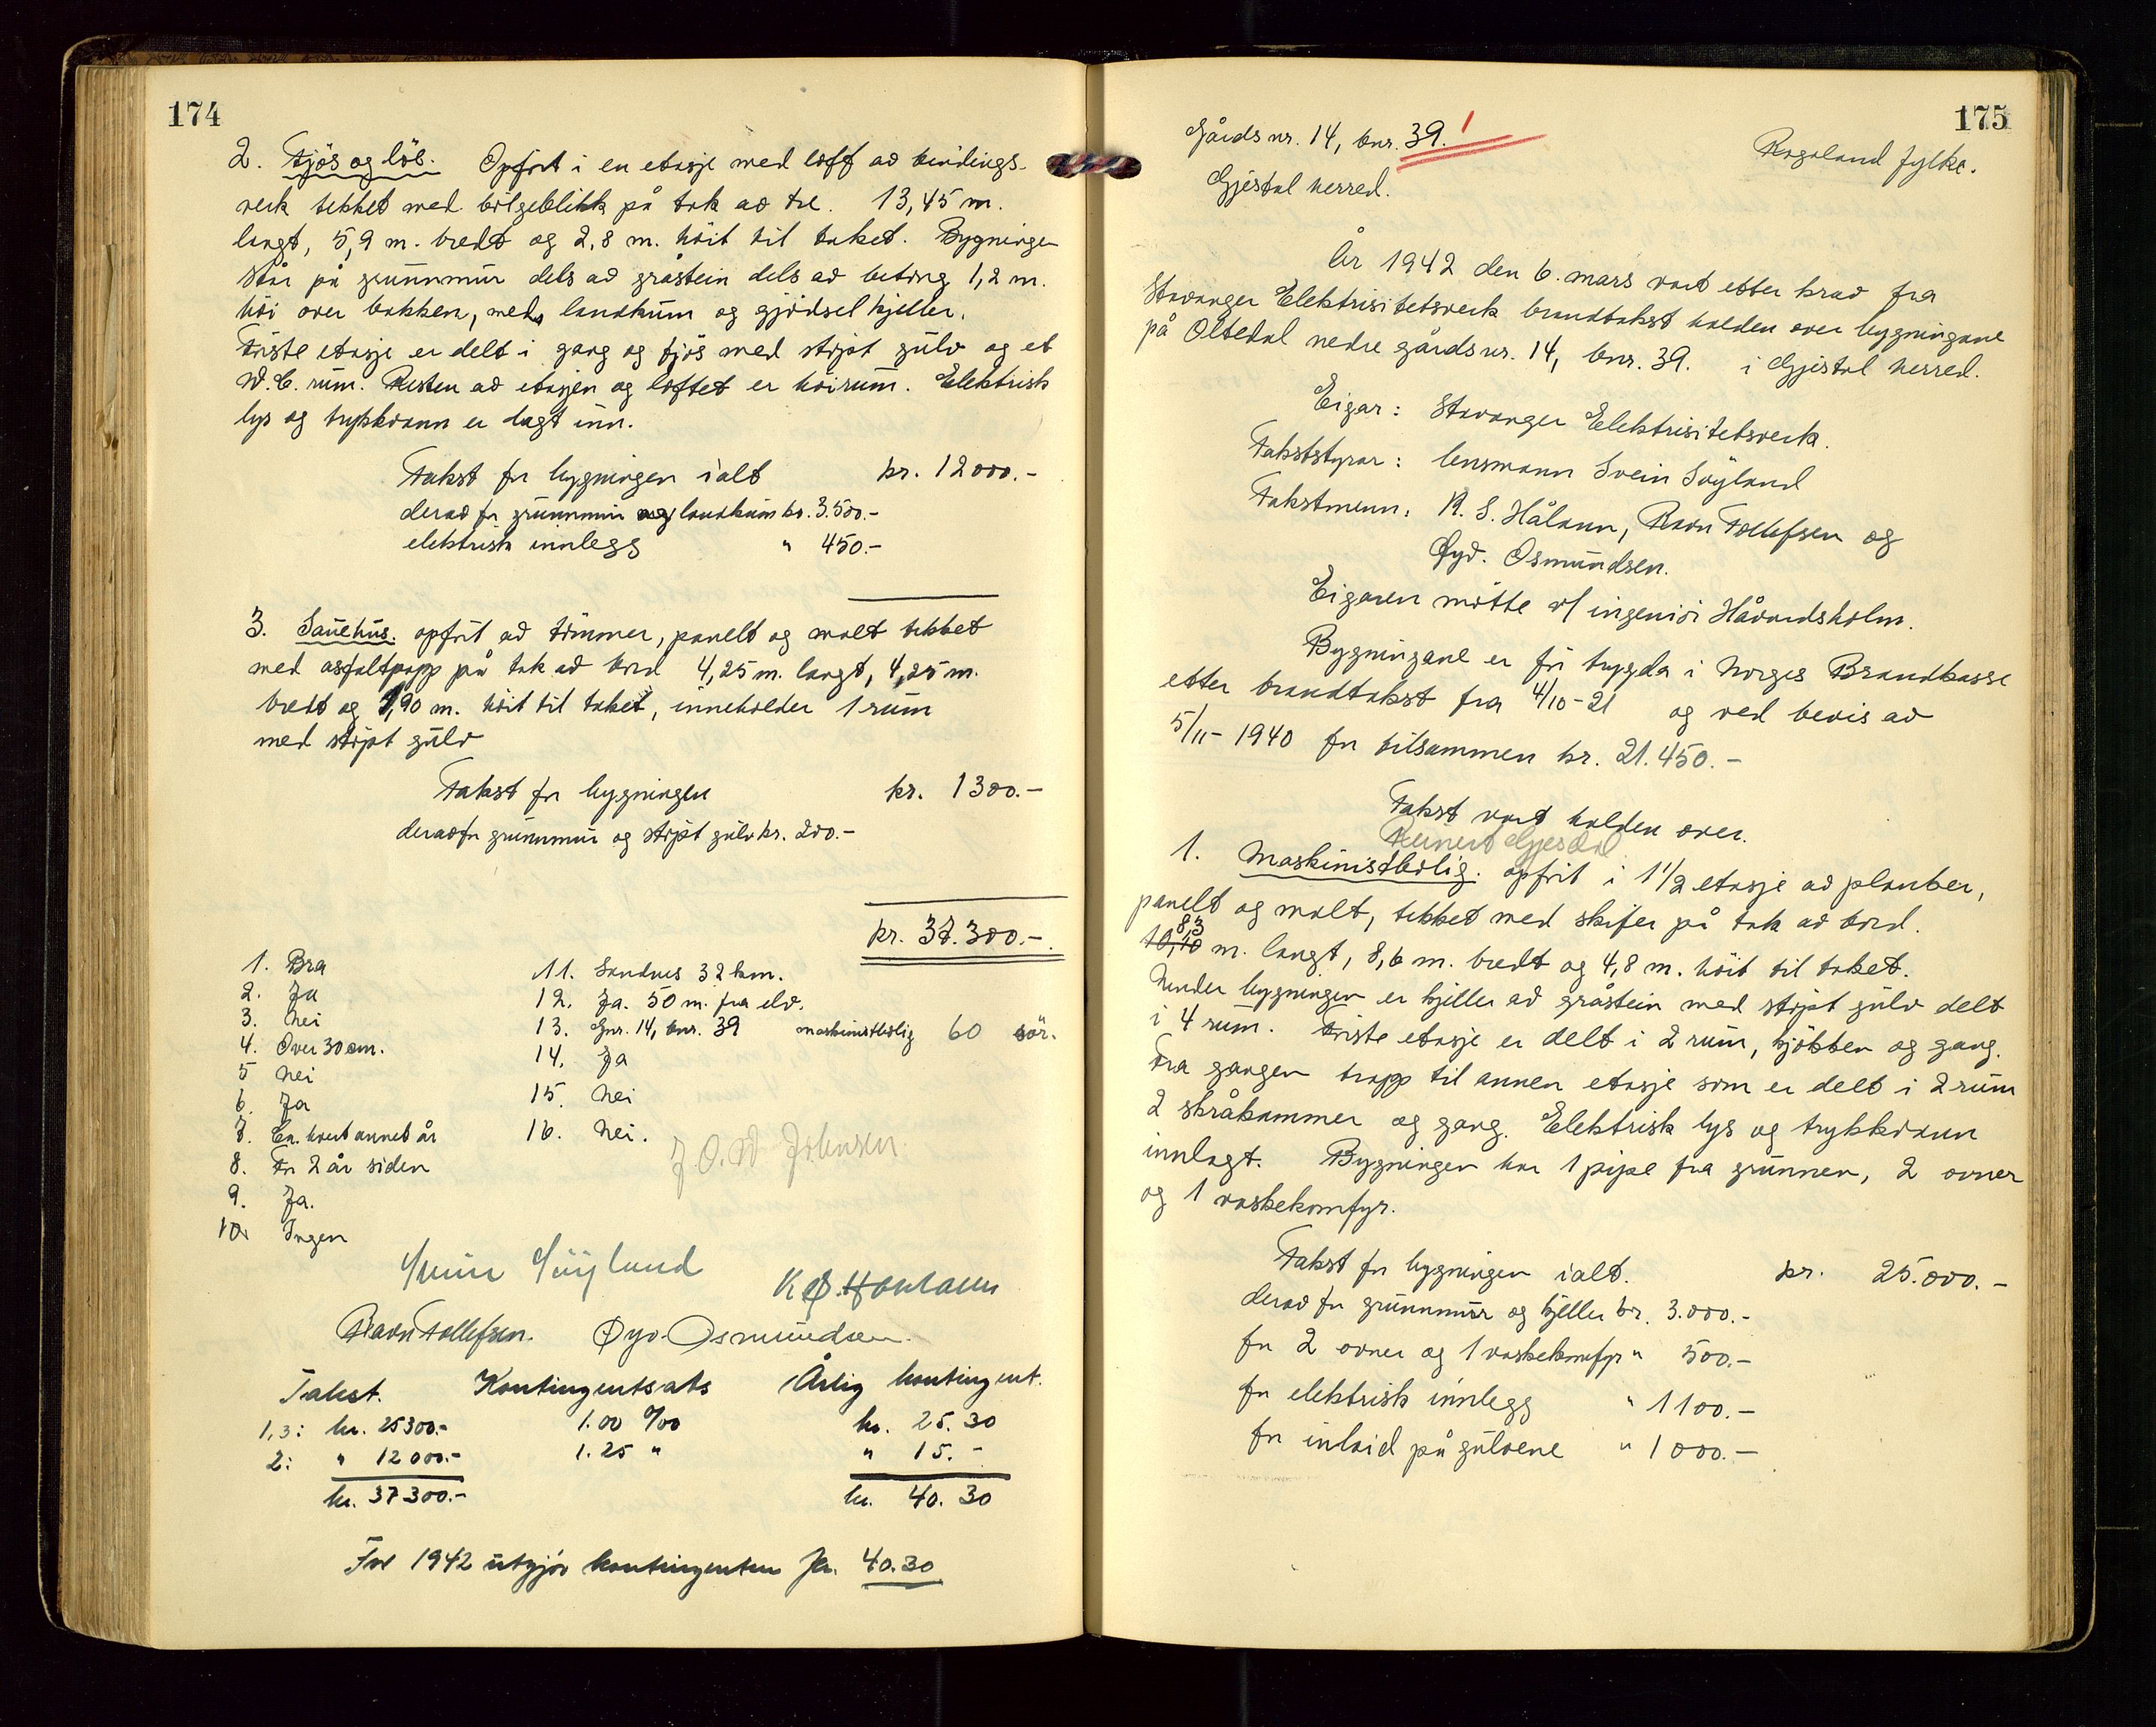 174
2. Fjös og löe. Opfört i en etasje med loff av bindings-
verk tekket med bölgeblikk på tak av tre. 13,45 m.
langt, 5,9 m. bredt og 2,8 m. höit til taket. Bygningen
står på grunnmur dels av gråstein dels av betong 1,2 m.
höi over bakken, med landkum og gjödselkjeller.
Förste etasje er delt i gang og fjös med stöpt gulv og et
W.C. rum. Resten av etasjen og loftet er höirum. Elektrisk
lys og trykkvann er lagt inn.
Takst for bygningen ialt kr. 12000.-
derav for grunnmur og landkum kr. 3.500.-
elektrisk innlegg " 450.-
3. Sauehus. opfört av tömmer, panelt og malt tekket
med asfaltpapp på tak av bord 4,25 m. langt, 4,25 m.
bredt og 1,90 m. höit til taket, inneholder 1 rum
med stöpt gulv
Takst for bygningen kr. 1300.-
derav for grunnmur og stöpt gulv kr. 200.-
kr. 37.300.-
1. Bra
2. Ja
3. Nei
4. Over 30 cm.
5 Nei
6. Ja
7. En. hvert annet år
8. For 2 år siden
9. Ja.
10. Ingen
11. Sandnes 32 km.
12. Ja. 50 m. fra elv.
13. Gnr. 14, bnr. 39 maskinistbolig 60 sör.
14. Ja
15. Nei
16. Nei.
J. O. W Johnsen
Svein Söyland
Ravn Tollefsen. Øyv. Osmundsen.
Takst. Kontingentsats Årlig kontingent.
1,3: kr. 25300.- 1.00 ‰ kr. 25.30
2: " 12000.- 1.25 " " 15.-
kr. 37300.- kr. 40.30
For 1942 utgjör kontingenten kr. 40.30
175
Gårds nr. 14, bnr. 39. 1
Rogaland fylke.
Gjestal herred.
År 1942 den 6. mars vart etter krav fra
Stavanger Elektrisitetsverk brandtakst halden over bygningane
på Oltedal nedre gårdsnr. 14, bnr. 39. i Gjestal herred.
Eigar: Stavanger Elektrisitetsverk.
Takststyrar: lensmann Svein Söyland
Takstmenn: K. S. Hålann, Ravn Tollefsen og
Øyv. Osmundsen.
Eigaren mötte v/ ingeniör Håvardsholm.
Bygningane er för trygda i Norges Brandkasse
etter brandtakst fra 4/10-21 og ved bevis av
5/11-1940 for tilsammen kr. 21.450.-
Takst vart halden over.
Reinert Gjesdal
1. Maskinistbolig. opfört i 1 1/2 etasje av planker,
panelt og malt, tekket med skifer på tak av bord.
8,3
10,10 m. langt, 8,6 m. bredt og 4,8 m. höit til taket.
Under bygningen er kjeller av gråstein med stöpt gulv delt
i 4 rum. Förste etasje er delt i 2 rum, kjökken og gang.
Fra gangen trapp til annen etasje som er delt i 2 rum
2 skråkammer og gang. Elektrisk lys og trykkvann
innlagt. Bygningen har 1 pipe fra grunnen, 2 ovner
og 1 vaskekomfyr.
Takst for bygningen ialt. kr. 25.000.-
derav for grunnmur og kjeller kr. 3.000.-
for 2 ovner og 1 vaskekomfyr " 500.-
for elektrisk innlegg " 1100.-
for inlaid på gulvene " 1000.-